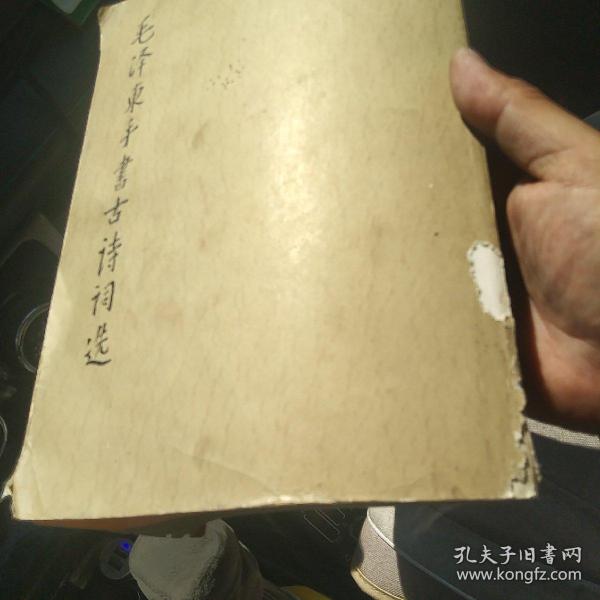 毛泽东手書古诗词选
孔夫子旧書网
www.kongfz.com